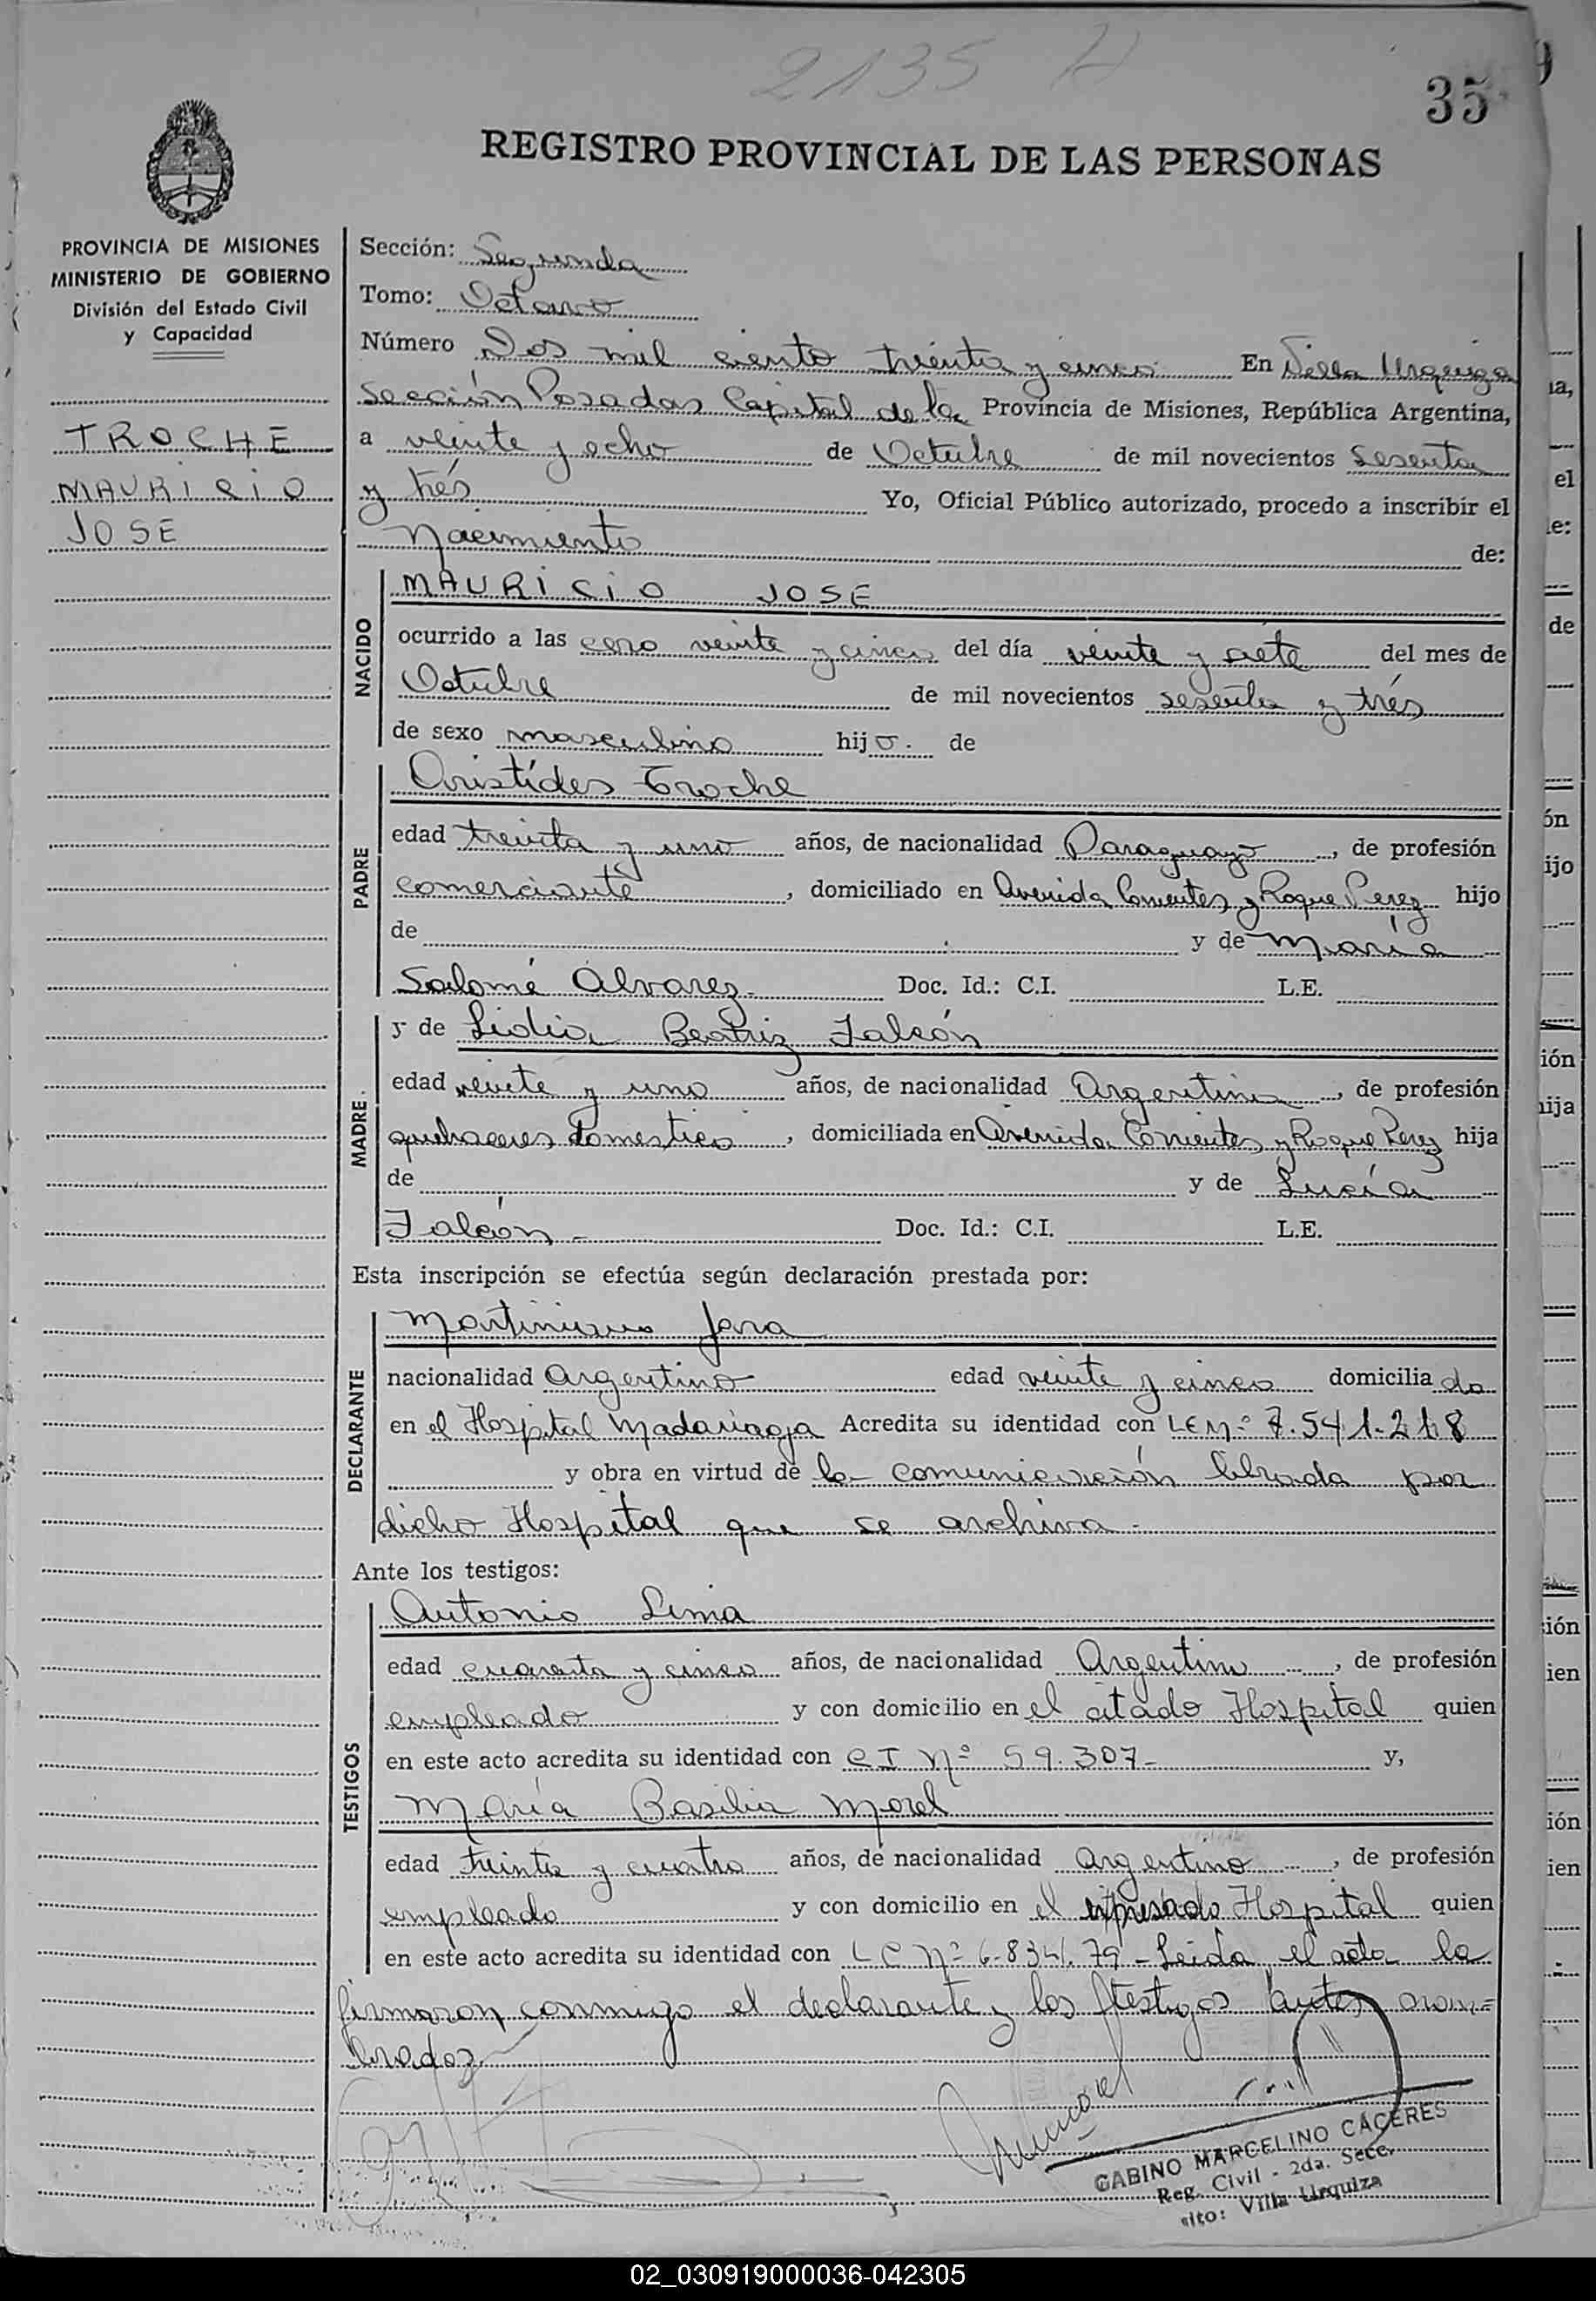 2135 H
35
REGISTRO PROVINCIAL DE LAS PERSONAS
PROVINCIA DE MISIONES
MINISTERIO DE GOBIERNO
División del Estado Civil
y Capacidad
TROCHE
MAURICIO
JOSE
Sección: Segunda
Tomo: Octavo
Número Dos mil ciento treinta y cinco En Villa Urquiza
Sección Posadas Capital de la Provincia de Misiones, República Argentina,
a veinte y ocho de Octubre de mil novecientos sesenta
y trés Yo, Oficial Público autorizado, procedo a inscribir el
Nacimiento de:
NACIDO
MAURICIO JOSE
ocurrido a las cero veinte y cinco del día veinte y siete del mes de
Octubre de mil novecientos sesenta y trés
de sexo masculino hijo. de
PADRE
Aristídes Troche
edad treinta y uno años, de nacionalidad Paraguayo, de profesión
comerciante, domiciliado en Avenida Corrientes y Roque Perez hijo
de y de María
Salomé Alvarez Doc. Id.: C.I. L.E.
MADRE.
y de Lidia Beatriz Falcón
edad veinte y uno años, de nacionalidad Argentina, de profesión
quehaceres domestico, domiciliada en Avenida Corrientes y Roque Perez hija
de y de Lucía
Falcón - Doc. Id.: C.I. L.E.
Esta inscripción se efectúa según declaración prestada por:
DECLARANTE
Martiniano Jara
nacionalidad Argentino edad veinte y cinco domiciliado
en el Hospital Madariaga Acredita su identidad con LE Nº 7.541.218
y obra en virtud de la comunicación librada por
dicho Hospital que se archiva.
Ante los testigos:
TESTIGOS
Antonio Lima
edad cuarenta y cinco años, de nacionalidad Argentino, de profesión
empleado y con domicilio en el citado Hospital quien
en este acto acredita su identidad con CI Nº 59.307- y,
María Basilia Morel
edad treinta y cuatro años, de nacionalidad Argentino, de profesión
empleado y con domicilio en el expresado Hospital quien
en este acto acredita su identidad con LC Nº 6.834.79 - Leida el acta la
firmaron conmigo el declarante y los testigos antes nom=
brados
GABINO MARCELINO CACERES
Reg. Civil - 2da. Secc.
sito: Villa Urquiza
02_030919000036-042305